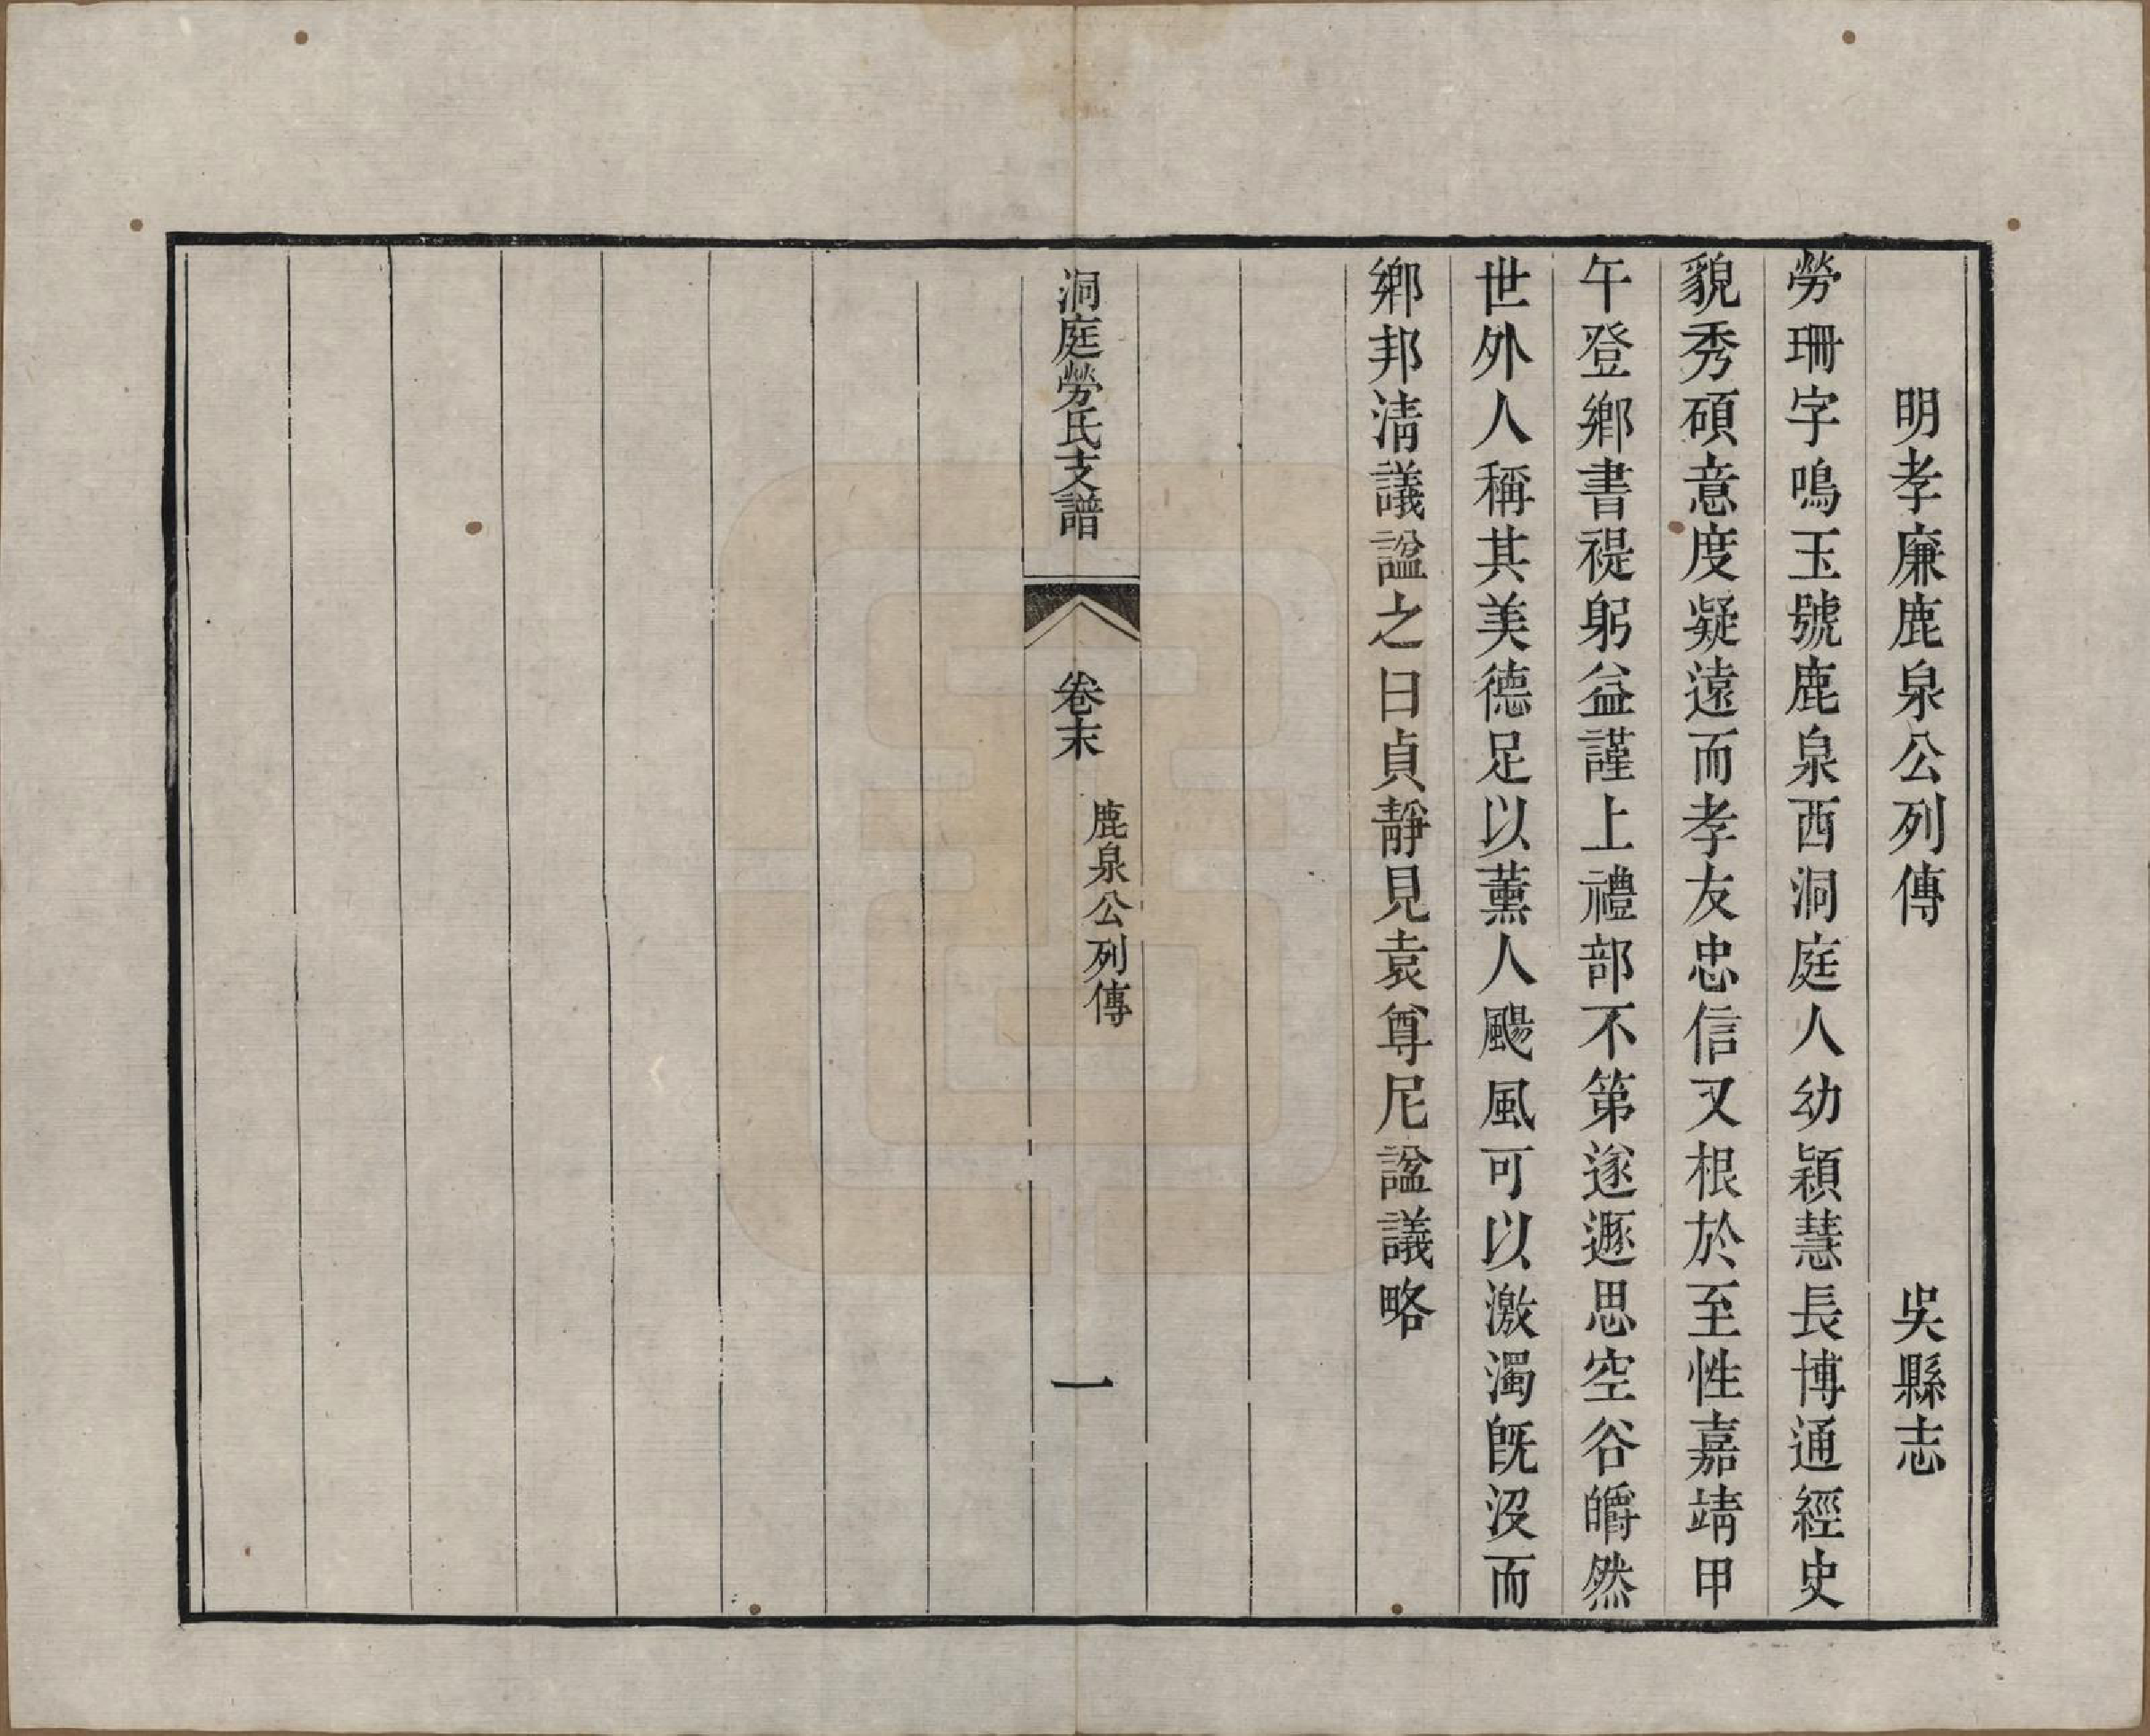 明孝廉鹿泉公列傳 吳縣志
勞珊字鳴玉號鹿泉西洞庭人幼穎慧長博通經史
貌秀碩意度凝遠而孝友忠信又根於至性嘉靖甲
午登鄉書禔躬益謹上禮部不第遂遯思空谷皭然
世外人稱其美德足以薰人颺風可以激濁旣沒而
鄉邦淸議諡之曰貞靜見袁尊尼諡議略
洞庭勞氏支譜
卷末
鹿泉公列傳
一